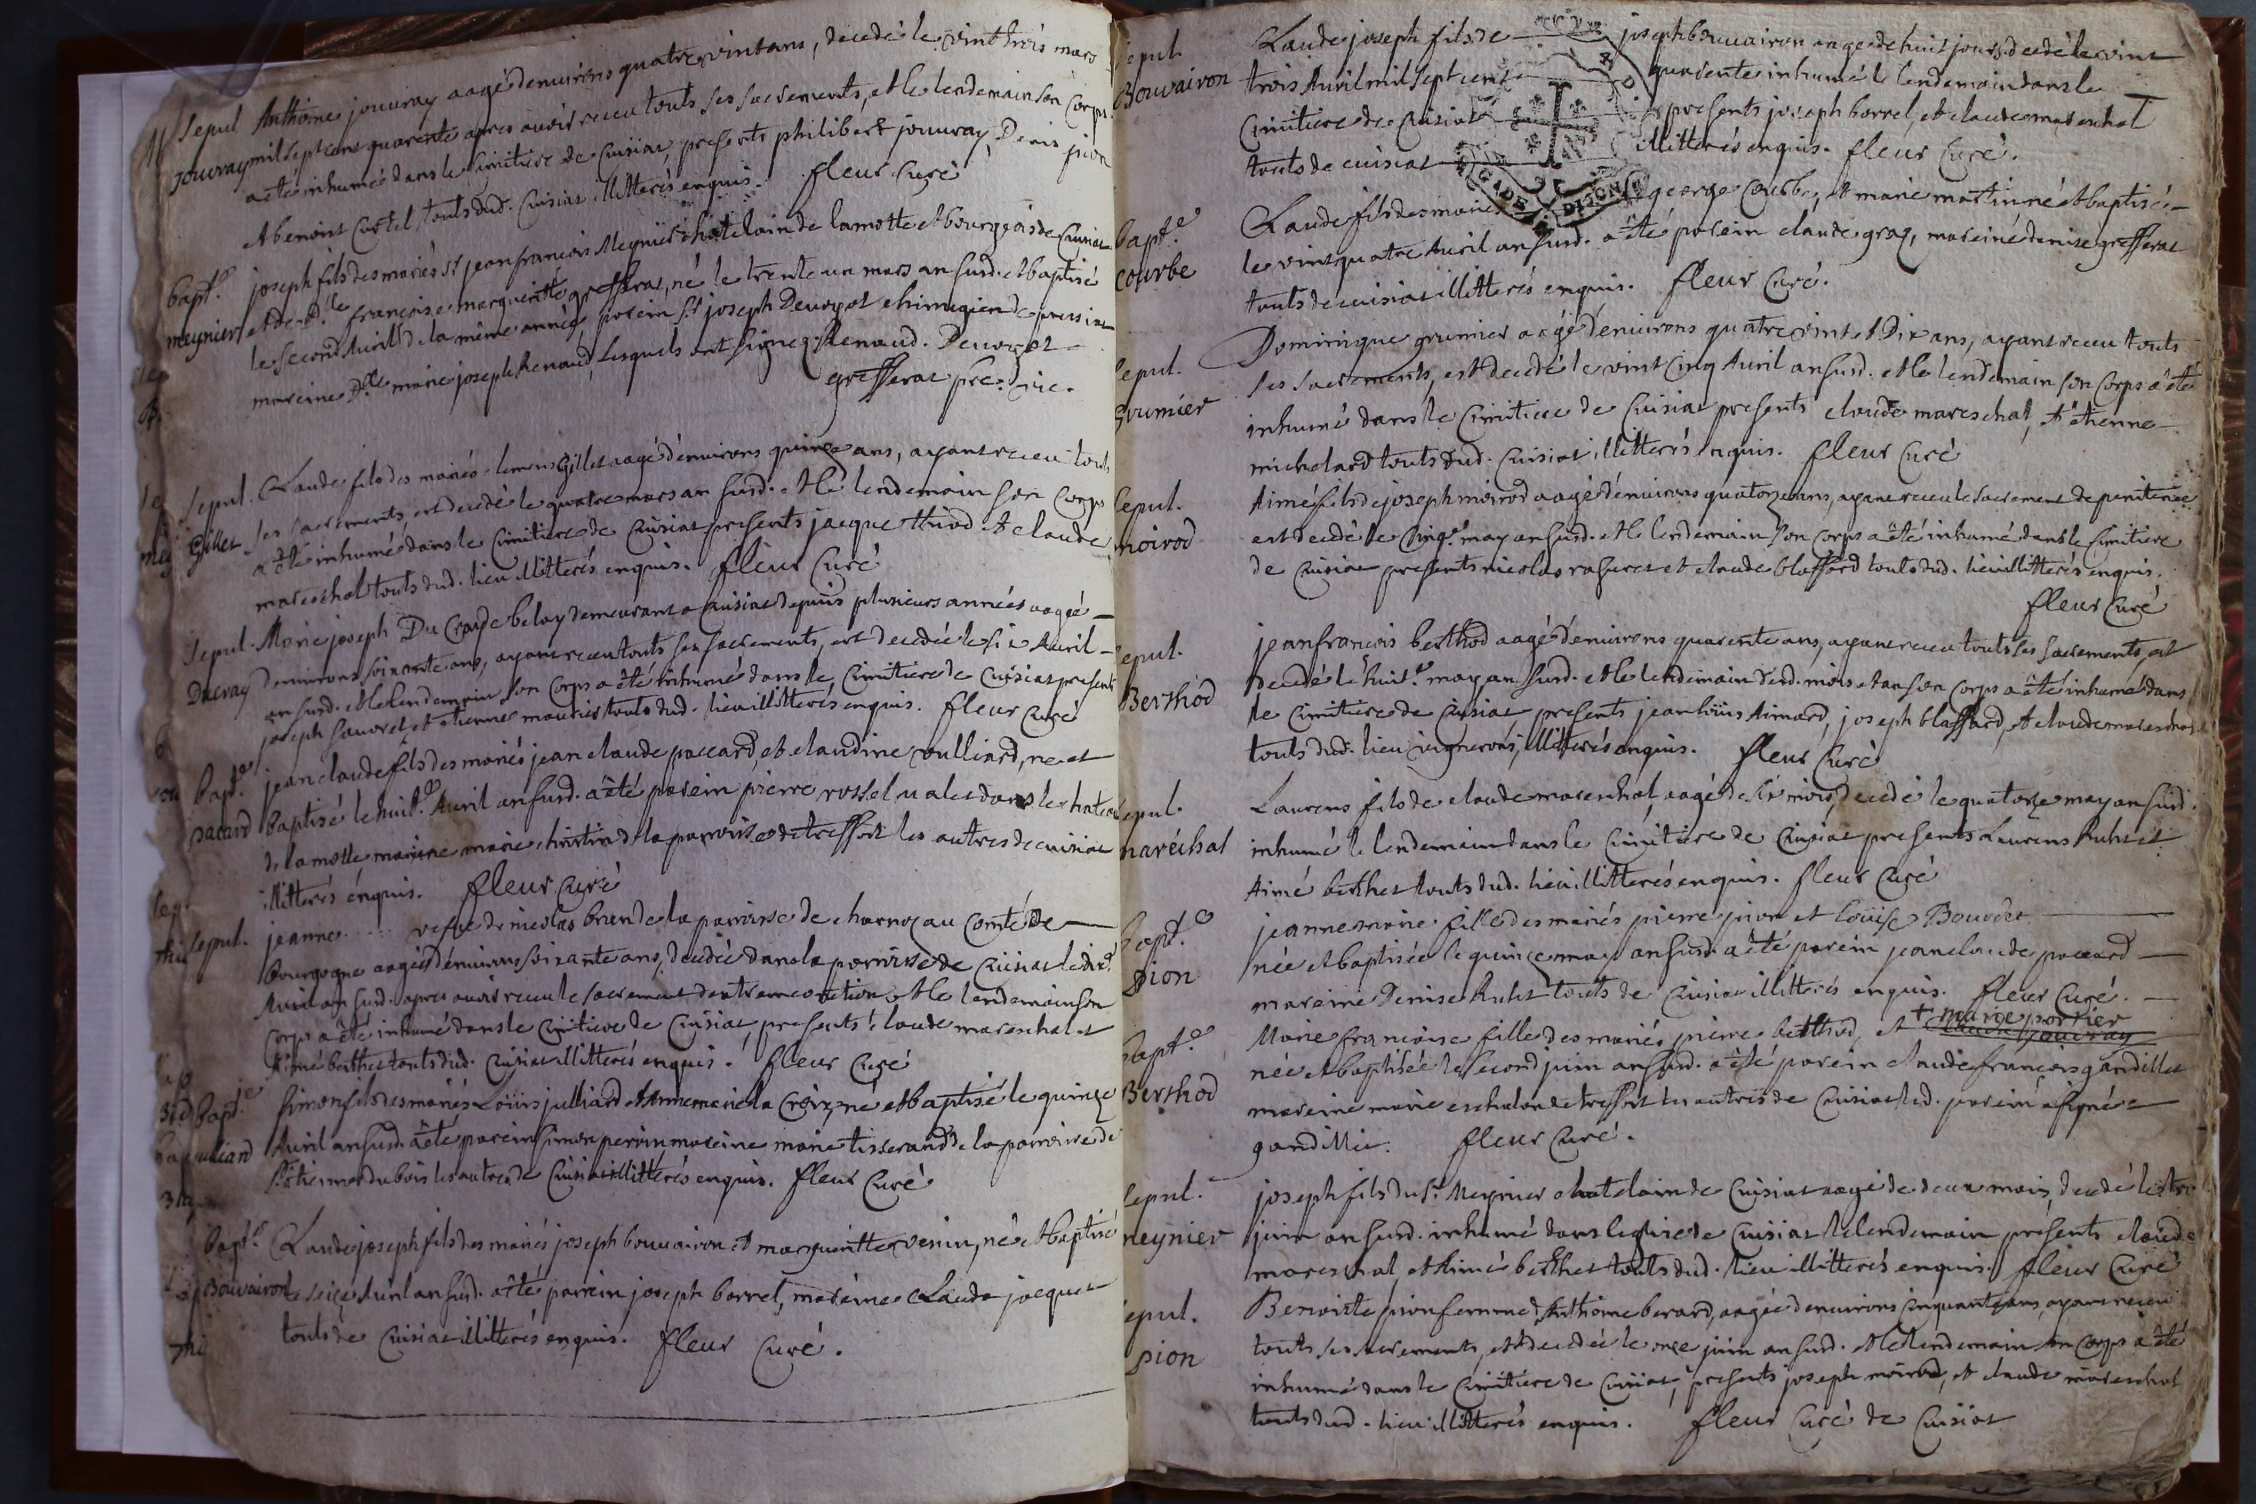 Sepul Anthoine jouvray aagé denvirons quatre vint ans, decedé le vint trois mars
jouvray mil sept cent quarente apres avoir receu touts ses sacrements, et le lendemain son corps
a été inhumé dans le cimitiere de Cuisiat, presents philibert jouvray, Denis pion
et benoist Curtel touts dud. Cuisiat illitterés enquis. fleur Curé
bapt.e joseph fils des mariés sr jean francois Meynier chatelain de lamotte et bourgeois de Cuisiat
meynier et de d.lle francoise margueritte grefferat, né le trente un mars an susd. et baptisé
le second Avril de la même année parein sr joseph Devoyot chirurgien de pressiat
mareine d.lle marie joseph Renaud, lesquels ont signez Renaud. Devoyot
grefferat pre. vic.
Sepul. Claude fils des mariés clemens Gillet aagé denvirons quinze ans, ayant receu touts
Gillet ses sacrements, est decedé le quatre mars an susd. et le lendemain son corps
a été inhumé dans le cimitiere de Cuisiat presents jacque thiod et claude
mareschal touts dud. lieu illitterés enquis. fleur Curé
Sepul. Marie joseph Du Cray de belay demeurant a Cuisiat depuis plusieurs années aagée
Ducray denvirons soixante ans, ayant receu touts ses sacrements, est decedée le six Avril
an susd. et le lendemain son corps a été inhumé dans le cimitiere de Cuisiat present
joseph savoret et etienne mourier touts dud. lieu illitterés enquis. fleur Curé
bapt.e jean claude fils des mariés jean claude paccard, et claudine vulliard, ne et
pacard baptisé le huit.e Avril an susd. a été parein pierre rossel valet dans le chateau
de lamotte mareine marie christin de la parroisse de treffort les autres de cuisiat
illitterés enquis. fleur Curé
sepul. jeanne .... vefve de nicolas brun de la parroisse de charnoz au Comté de
Bourgogne aagée denvirons soixante ans, decedée dans la parroisse de Cuisiat le dix.e
Avril an susd. apres avoir receu le sacrement dextremeonction et le lendemain son
corps a été inhumé dans le cimitiere de Cuisiat, presents claude mareschal et
Aimé berthet touts dud. Cuisiat illitterés enquis. fleur Curé
Bapt.e simon fils des mariés Loüis julliard et Anne marie la Croix, ne et baptisé le quinze
juliard Avril an susd. a été parein simon perrin, mareine marie tisserand de la parroisse de
st etienne du bois les autres de Cuisiat illitterés enquis. fleur Curé
bapt.e Claude joseph fils des mariés joseph bouvairon et margueritte venin, né et baptisé
Bouvairon le seize Avril an susd. a été parrein joseph borrel, mareine Clauda jacquet
touts de Cuisiat illitterés enquis. fleur Curé.
sepul. Claude joseph fils de joseph bouvairon aagé de huit jours, decedé le vint
Bouvairon trois Avril mil sept cent quarente inhumé le lendemain dans le
cimitiere de Cuisiat presents joseph borrel, et claude mareschal
touts de cuisiat illitterés enquis. fleur Curé.
bapt.e Claude fils des mariés george Courbe, et marie martin né et baptisé
courbe le vint quatre Avril an susd. a été parein claude gray, mareine denise grefferat
touts de cuisiat illitterés enquis. fleur Curé.
sepul. Dominique grumier aagé denvirons quatre vint et Dix ans, ayant receu touts
grumier ses sacrements, est decedé le vint cinq Avril an susd. et le lendemain son corps a été
inhumé dans le cimitiere de Cuisiat presents claude mareschal, et etienne
michelard touts dud. Cuisiat illitterés enquis. fleur Curé
sepul. Aimé fils de joseph moirod aagé denvirons quatorze ans, ayant receu le sacrement de penitence
moirod est decedé le cinq.e may an susd. et le lendemain son corps a été inhumé dans le cimitiere
de Cuisiat presents nicolas rasuret et claude blaffard touts dud. lieu illitterés enquis.
fleur Curé
sepul. jean francois berthod aagé denvirons quarente ans, ayant receu touts ses sacrements, est
Berthod decedé le huit.e may an susd. et le lendemain dud. mois et an son corps a été inhumé dans
le cimitiere de Cuisiat, presents jean loüis Aimard, joseph blaffard, et claude mareschal
touts dud. lieu vignerons, illitterés enquis. fleur Curé
sepul. Laurens fils de claude mareschal, aagé de six mois decedé le quatorze may an susd.
maréchal inhumé le lendemain dans le cimitiere de Cuisiat presents Laurens Ruhet et
Aimé berthet touts dud. lieu illitterés enquis. fleur Curé
bapt.e jeanne marie fille des mariés pierre pion et loüise Bouvdet
pion née et baptisée le quinze may an susd. a été parein jean claude paccard
mareine Denise Ruhet touts de Cuisiat illitterés enquis. fleur Curé.
bapt.e Marie francoise fille des mariés pierre berthod, et + marie portier
Berthod née et baptisée le second juin an susd. a été parein claude francois gandillet
mareine marie eschalon de treffort les autres de Cuisiat led. parein a signé
gandillet. fleur Curé.
sepul. joseph fils du sr. Meynier chatelain de Cuisiat aagé de deux mois, decedé le
meynier juin an susd. inhumé dans leglise de Cuisiat le lendemain présents claude
mareschal et Aimé berthet touts dud. lieu illitterés enquis. fleur Curé
sepul. Benoiste pion femme d Anthoine berard, aagée denvirons cinquante ans, ayant receu
pion touts ses sacrements, est decedée le onze juin an susd. et le lendemain son corps a été
inhumé dans le cimitiere de Cuisiat, presents joseph moirod, et claude mareschal
touts dud. lieu illitterés enquis. fleur Curé de Cuisiat